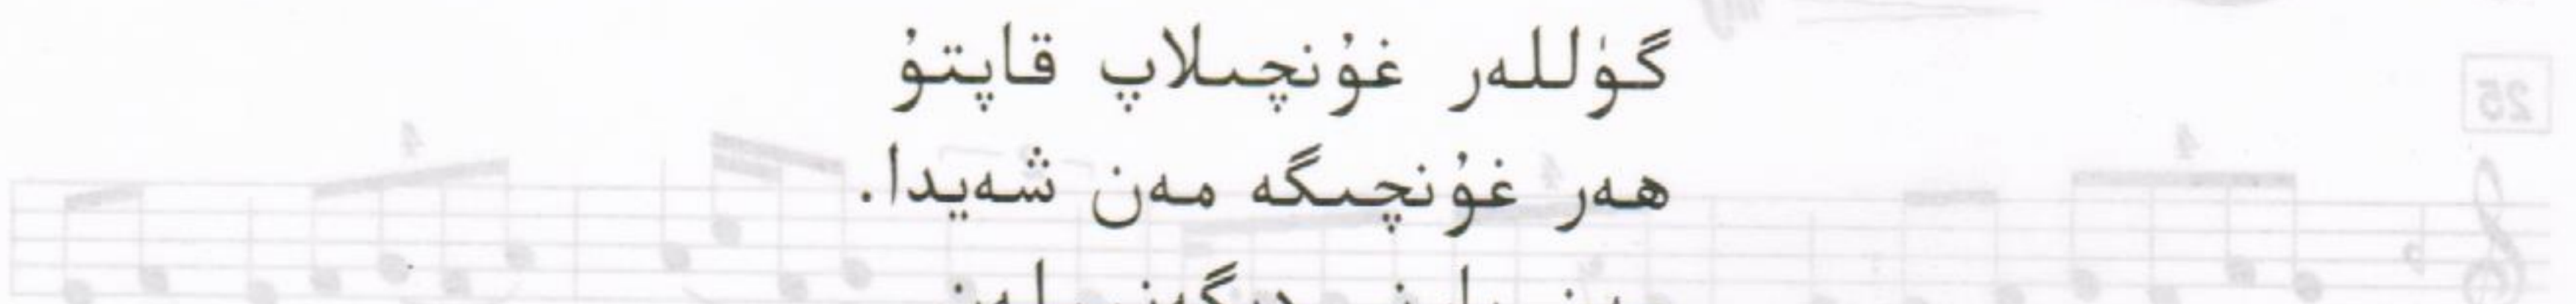 گۈللەر غۇنچىلاپ قاپتۇ
ھەر غۇنچىگە مەن شەيدا.
25
4
4
4